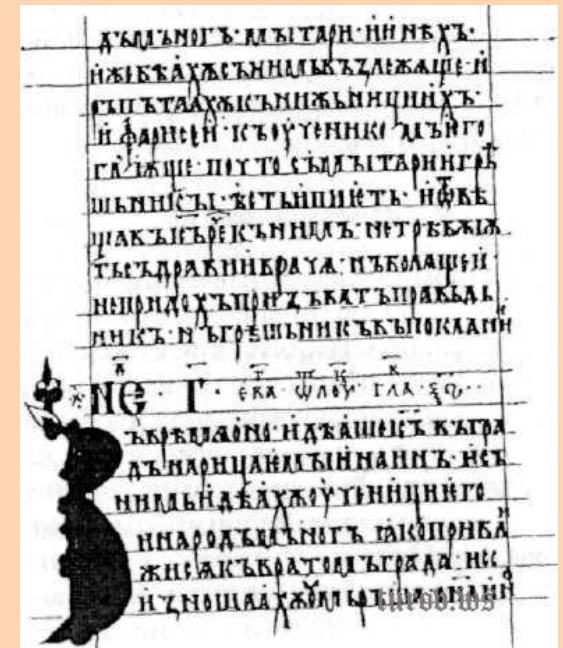 дъмъногъ· мꙑтари· ꙇ инѣхъ·
иже бѣахѫ съ нимь възлежѧще· и
ръпътаахѫ кънижьници ихъ·
и фарисеи· къ оученико мъ его
гл҃ѭще· почто съ мꙑтари и грѣ
шьникꙑ· ѣстъ и пиетъ· и ѿвѣ
щавъ и҃съ рече къ нимъ· не трѣбѫѭ
тъ съдрави врача· нъ болѧщеи·
не придохъ призъватъ правьдь
никъ· нъ грѣшьникъ въ покаани
не҃ · г҃ · ева ѿ лоу҃к гла
ъ врѣмѧ оно· идѣаше и҃съ въ гра
дъ нарицаемꙑи наинъ· и съ
нимь идѣахѫ оученици его
и народъ мъногъ ꙗко прибли
жисѧ къ вратомъ града· и се
изношаахѫ оумьръша
turov.ws